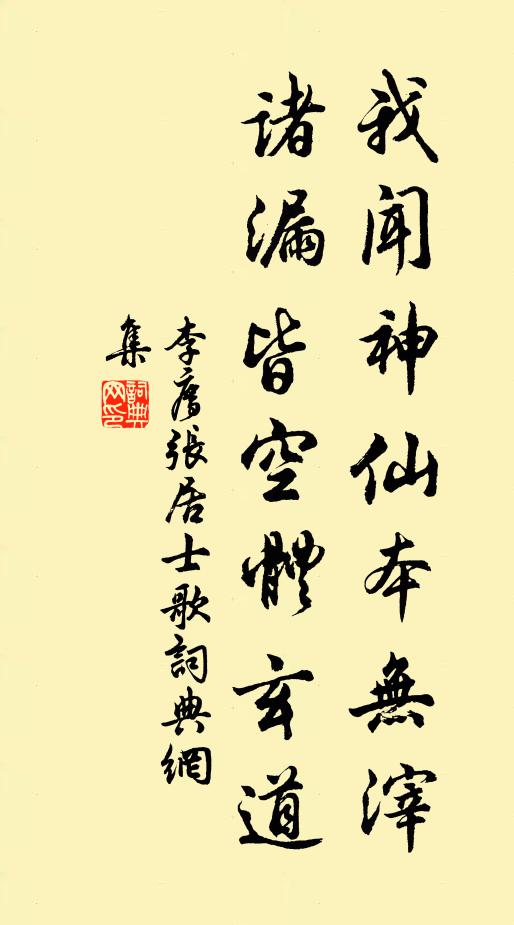 我聞神仙本無滓
諸漏皆空體玄道
李廌張居士歌詞典網
集
詞典
网印